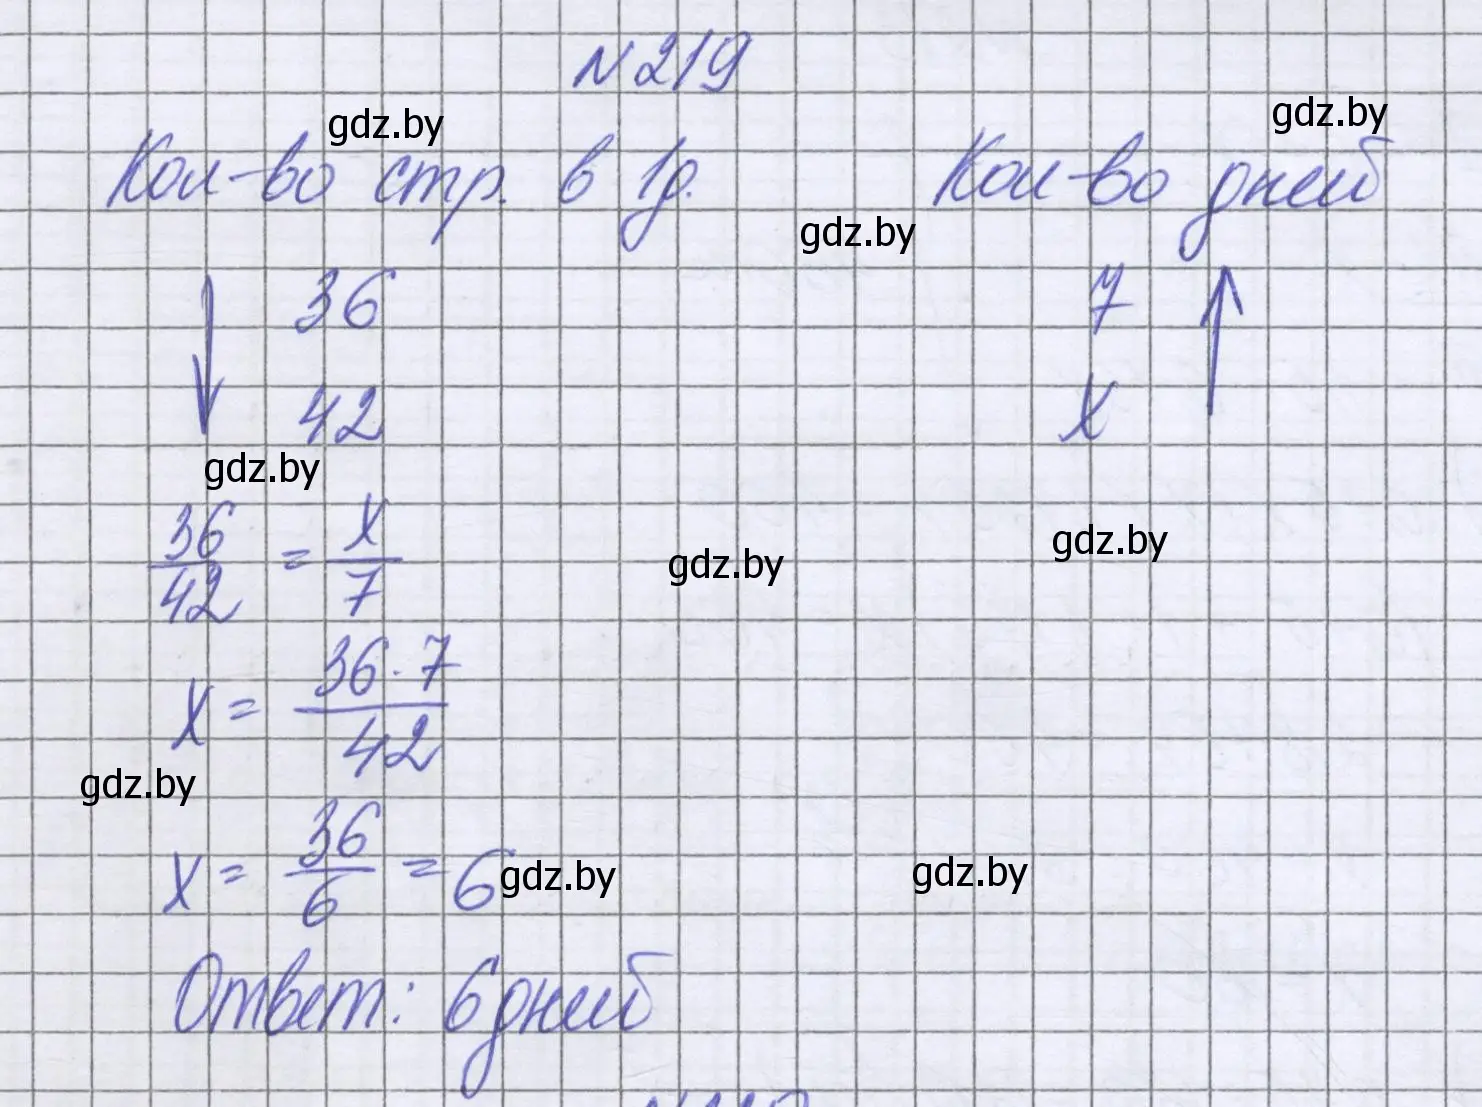 N 219
gdz.by
gdz.by
Кол-во стр. в 1д. Кол-во дней
gdz.by
36 7
42 x
gdz.by
36/42 = x/7
gdz.by
gdz.by
x = 36·7/42
gdz.by
x = 36/6 = 6
gdz.by
gdz.by
Ответ: 6 дней